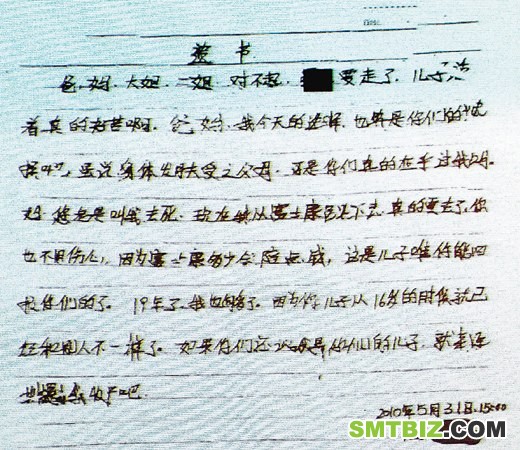 遗书
爸，妈，大姐，二姐 对不起，要走了，儿子活
着真的好苦啊。爸 妈，我今天的选择，也算是你们的
择吧，虽说身体发肤受之父母，可是你们真的在乎过我吗。
妈 您老是叫我去死，现在我从富士康跳下去，真的要去了，你
也不用伤心，因为富士康多少会赔点钱，这是儿子唯你能回
报你们的了。19年了，我也够了。因为你儿子从16岁的时候就已
经和别人不一样了。如果你们还认我是你们的儿子，就来
我收尸吧
2010年5月31日.15:00
SMTBIZ.COM